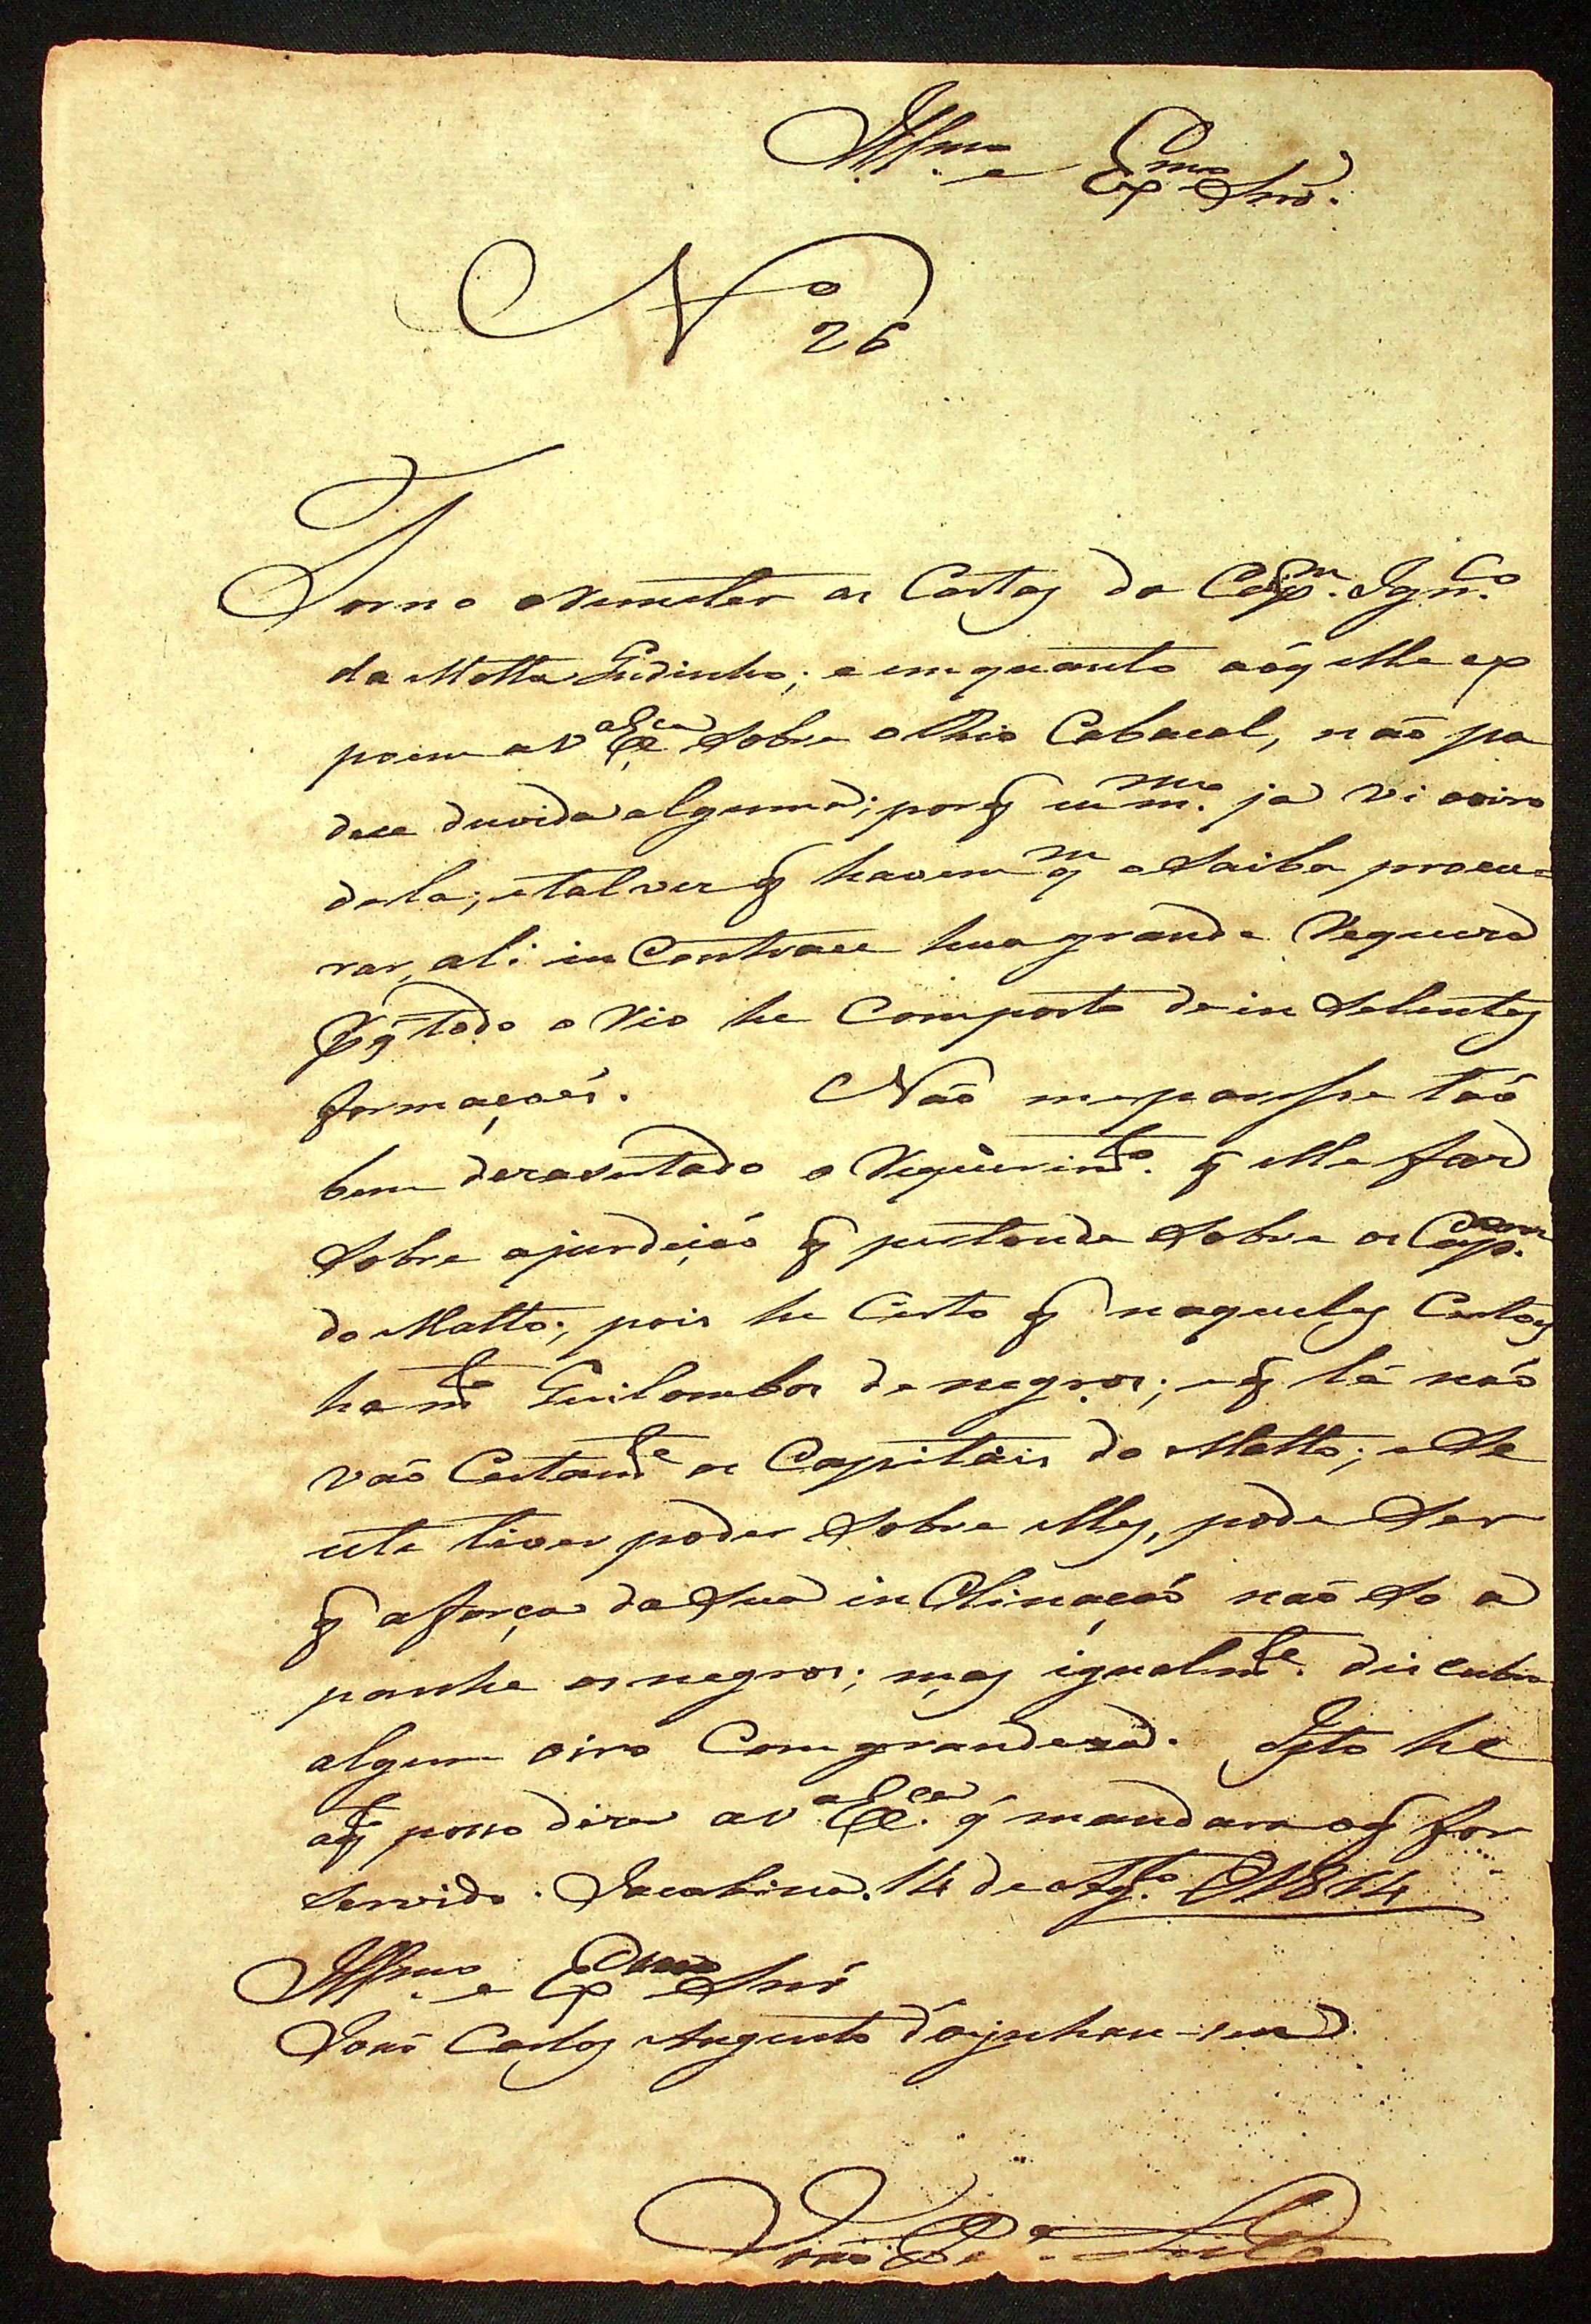 Illmo. e Exmo. Snr.
No 26
Torno a remeter as Cartas do Capm. Ignco.
da Motta Gudinho; e em quanto aóq elle ex
poem a V.a Exca. Sobre o Rio Cabacal, naõ pa
dece duvida alguma; porq eu mmo. ja vi oiro
de la; e talvez q havem qm o Saiba procu=
rar, ali in Contrace hua grande requeza
pq todo o rio he Composto de in Selentes
formaçoés. Naõ me parese taõ
bem deza sertado o Requerimto. q elle faz
Sobre a jurdiçaõ q pertende Sobre os Capm.
do Matto; pois he Certo q naqueles Certos
ha mto Guilombos de negros; e q lá naõ
vaõ Certamte os Capitais do Matto; e Se
este tiver poder Sobre elles, pode Ser
q a força da Sua in Clinaçaõ naõ So a
panhe os negros; mas igualmte. discubra
algum oiro Com grandeza. Isto he
o q posso dizer a V.a Exca. q mandara o q for
Servido. Jacobina. 14 de Agto. de 1814
Illmo. e Exmo Snr
Joaõ Carlos Augusto d'Oeynhau-sen
Joaõ Pa. Leite